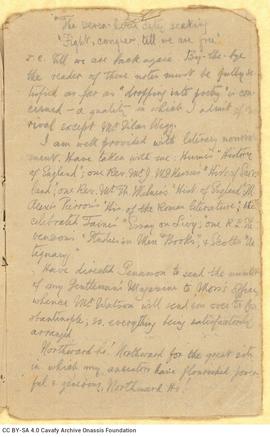 "The seven-hilled city seeking
'Fight, conquer, till we are free'
i.e. till we are back again. By-the-bye
the reader of these notes must be fully sa-
tisfied as far as "dropping into poetry" is con-
cerned — a quality in which I admit of no
rival except Mr Silas Wegg.
I am well provided with literary nourish-
ment. Have taken with me: Hume's "History
of England"; one Rev. Mr J. "Hist. of
land"; one Rev. Mr "Hist. of England"; M.
Alexis Pierron's "His. of the Roman Literature"; the
celebrated Taine's "Essay on Livy"; one R. L.
Stevenson's "Studies in Men & Books"; & Scott's "An-
tiquary".
Have directed to send the number
of my Gentleman's Magazine to Moss's Office,
whence Mr Watson will send em over to Co-
stantinople; so, everything being satisfactorily
arranged
Northward ho! Northward for the great city
in which my ancestors have flourished power-
ful & glorious, Northward Ho!
CC BY-SA 4.0 Cavafy Archive Onassis Foundation